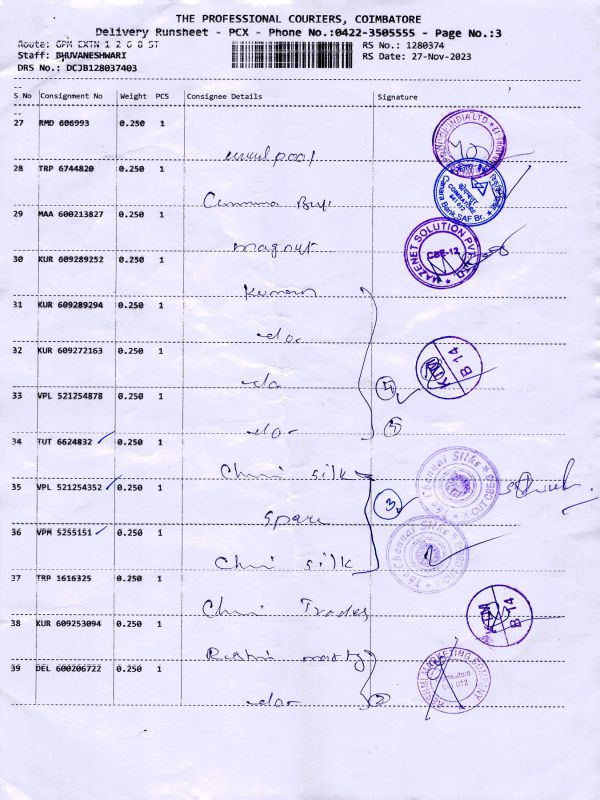 THE PROFESSIONAL COURIERS, COIMBATORE
Delivery Runsheet - PCX - Phone No.:0422-3505555 - Page No.:3
Route: GPM EXTN 1 2 6 8 ST
RS No.: 1280374
Staff: BHUVANESHWARI
RS Date: 27-Nov-2023
DRS No.: DCJB128037403
S No Consignment No Weight PCS Consignee Details Signature
27 RMD 606993 0.250 1
INDIA LTD
28 TRP 6744820 0.250 1
COIMBATORE
641 012
Canara Bank SAF Br.
29 MAA 600213827 0.250 1
MAZENET SOLUTION PVT LTD
CBE-12
30 KUR 609289252 0.250 1
Kumaran
31 KUR 609289294 0.250 1
-do-
32 KUR 609272163 0.250 1
-do-
B 14
33 VPL 521254878 0.250 1
-do-
34 TUT 6624832 0.250 1
Chennai silk
35 VPL 521254352 0.250 1
3
The Chennai Silks
X-CUT CBE
36 VPM 5255151 0.250 1
Chennai silk
The Chennai Silks
37 TRP 1616325 0.250 1
Chennai Trades
B 14
38 KUR 609253094 0.250 1
MARKETING COMPANY
39 DEL 600206722 0.250 1
-do-
2